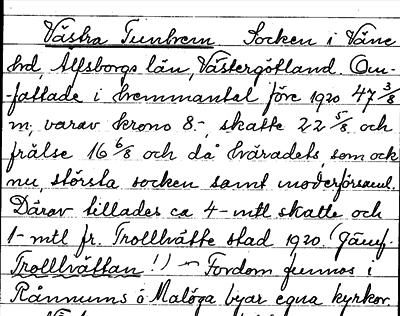 Västra Tunhem. Socken i Väne
hrd, Älfsborgs län, Västergötland. Om-
-fattade i hemmantal före 1920 47 3/8
m, varav krono 8.-, skatte 22 5/8, och
frälse 16 6/8 och då häradets, som ock
nu, största socken samt moderförsaml.
Därav tillades ca 4-mtl skatte och
1-mtl fr. Trollhätte stad 1920. (Jämf.
Trollhättan!) - Fordom funnos i
Rånnums o Malöga byar egna kyrkor.